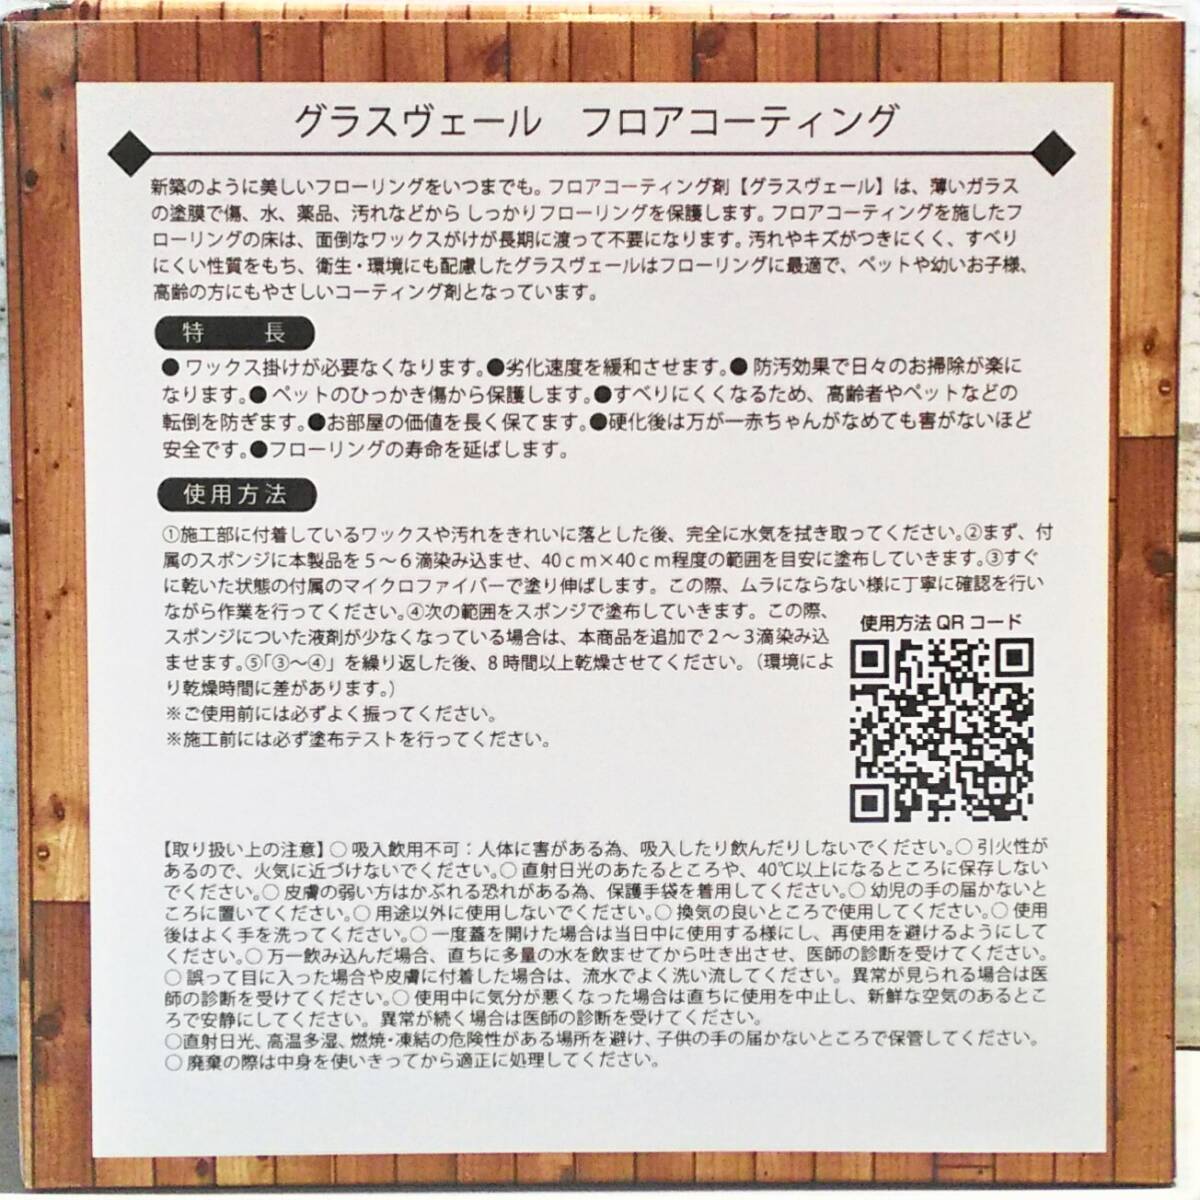 グラスヴェール　フロアコーティング
新築のように美しいフローリングをいつまでも。フロアコーティング剤【グラスヴェール】は、薄いガラス
の塗膜で傷、水、薬品、汚れなどから しっかりフローリングを保護します。フロアコーティングを施したフ
ローリングの床は、面倒なワックスがけが長期に渡って不要になります。汚れやキズがつきにくく、すべり
にくい性質をもち、衛生・環境にも配慮したグラスヴェールはフローリングに最適で、ペットや幼いお子様、
高齢の方にもやさしいコーティング剤となっています。
特　長
● ワックス掛けが必要なくなります。●劣化速度を緩和させます。● 防汚効果で日々のお掃除が楽に
なります。● ペットのひっかき傷から保護します。●すべりにくくなるため、高齢者やペットなどの
転倒を防ぎます。●お部屋の価値を長く保てます。●硬化後は万が一赤ちゃんがなめても害がないほど
安全です。●フローリングの寿命を延ばします。
使用方法
①施工部に付着しているワックスや汚れをきれいに落とした後、完全に水気を拭き取ってください。②まず、付
属のスポンジに本製品を５～６滴染み込ませ、40ｃｍ×40ｃｍ程度の範囲を目安に塗布していきます。③すぐ
に乾いた状態の付属のマイクロファイバーで塗り伸ばします。この際、ムラにならない様に丁寧に確認を行い
ながら作業を行ってください。④次の範囲をスポンジで塗布していきます。この際、
スポンジについた液剤が少なくなっている場合は、本商品を追加で２～３滴染み込
ませます。⑤「③～④」を繰り返した後、８時間以上乾燥させてください。（環境によ
り乾燥時間に差があります。）
※ご使用前には必ずよく振ってください。
※施工前には必ず塗布テストを行ってください。
使用方法 QR コード
【取り扱い上の注意】○ 吸入飲用不可：人体に害がある為、吸入したり飲んだりしないでください。○ 引火性が
あるので、火気に近づけないでください。○ 直射日光のあたるところや、40℃以上になるところに保存しない
でください。○ 皮膚の弱い方はかぶれる恐れがある為、保護手袋を着用してください。○ 幼児の手の届かないと
ころに置いてください。○ 用途以外に使用しないでください。○ 換気の良いところで使用してください。○ 使用
後はよく手を洗ってください。○ 一度蓋を開けた場合は当日中に使用する様にし、再使用を避けるようにして
ください。○ 万一飲み込んだ場合、直ちに多量の水を飲ませてから吐き出させ、医師の診断を受けてください。
○ 誤って目に入った場合や皮膚に付着した場合は、流水でよく洗い流してください。異常が見られる場合は医
師の診断を受けてください。○ 使用中に気分が悪くなった場合は直ちに使用を中止し、新鮮な空気のあるとこ
ろで安静にしてください。異常が続く場合は医師の診断を受けてください。
○直射日光、高温多湿、燃焼・凍結の危険性がある場所を避け、子供の手の届かないところで保管してください。
○ 廃棄の際は中身を使いきってから適正に処理してください。